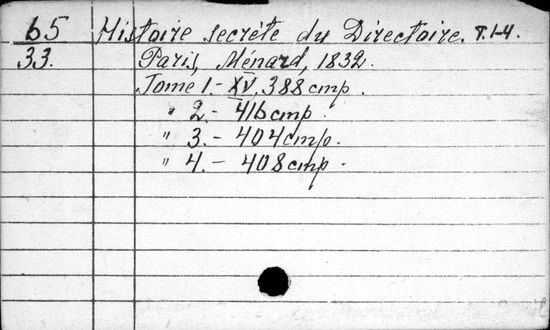 65 Histoire secrète du Directoire. T.1-4.
33. Paris, Ménard, 1832.
Tome 1.- XV, 388 cmp.
" 2.- 416 cmp.
" 3.- 404 cmp.
" 4.- 408 cmp.